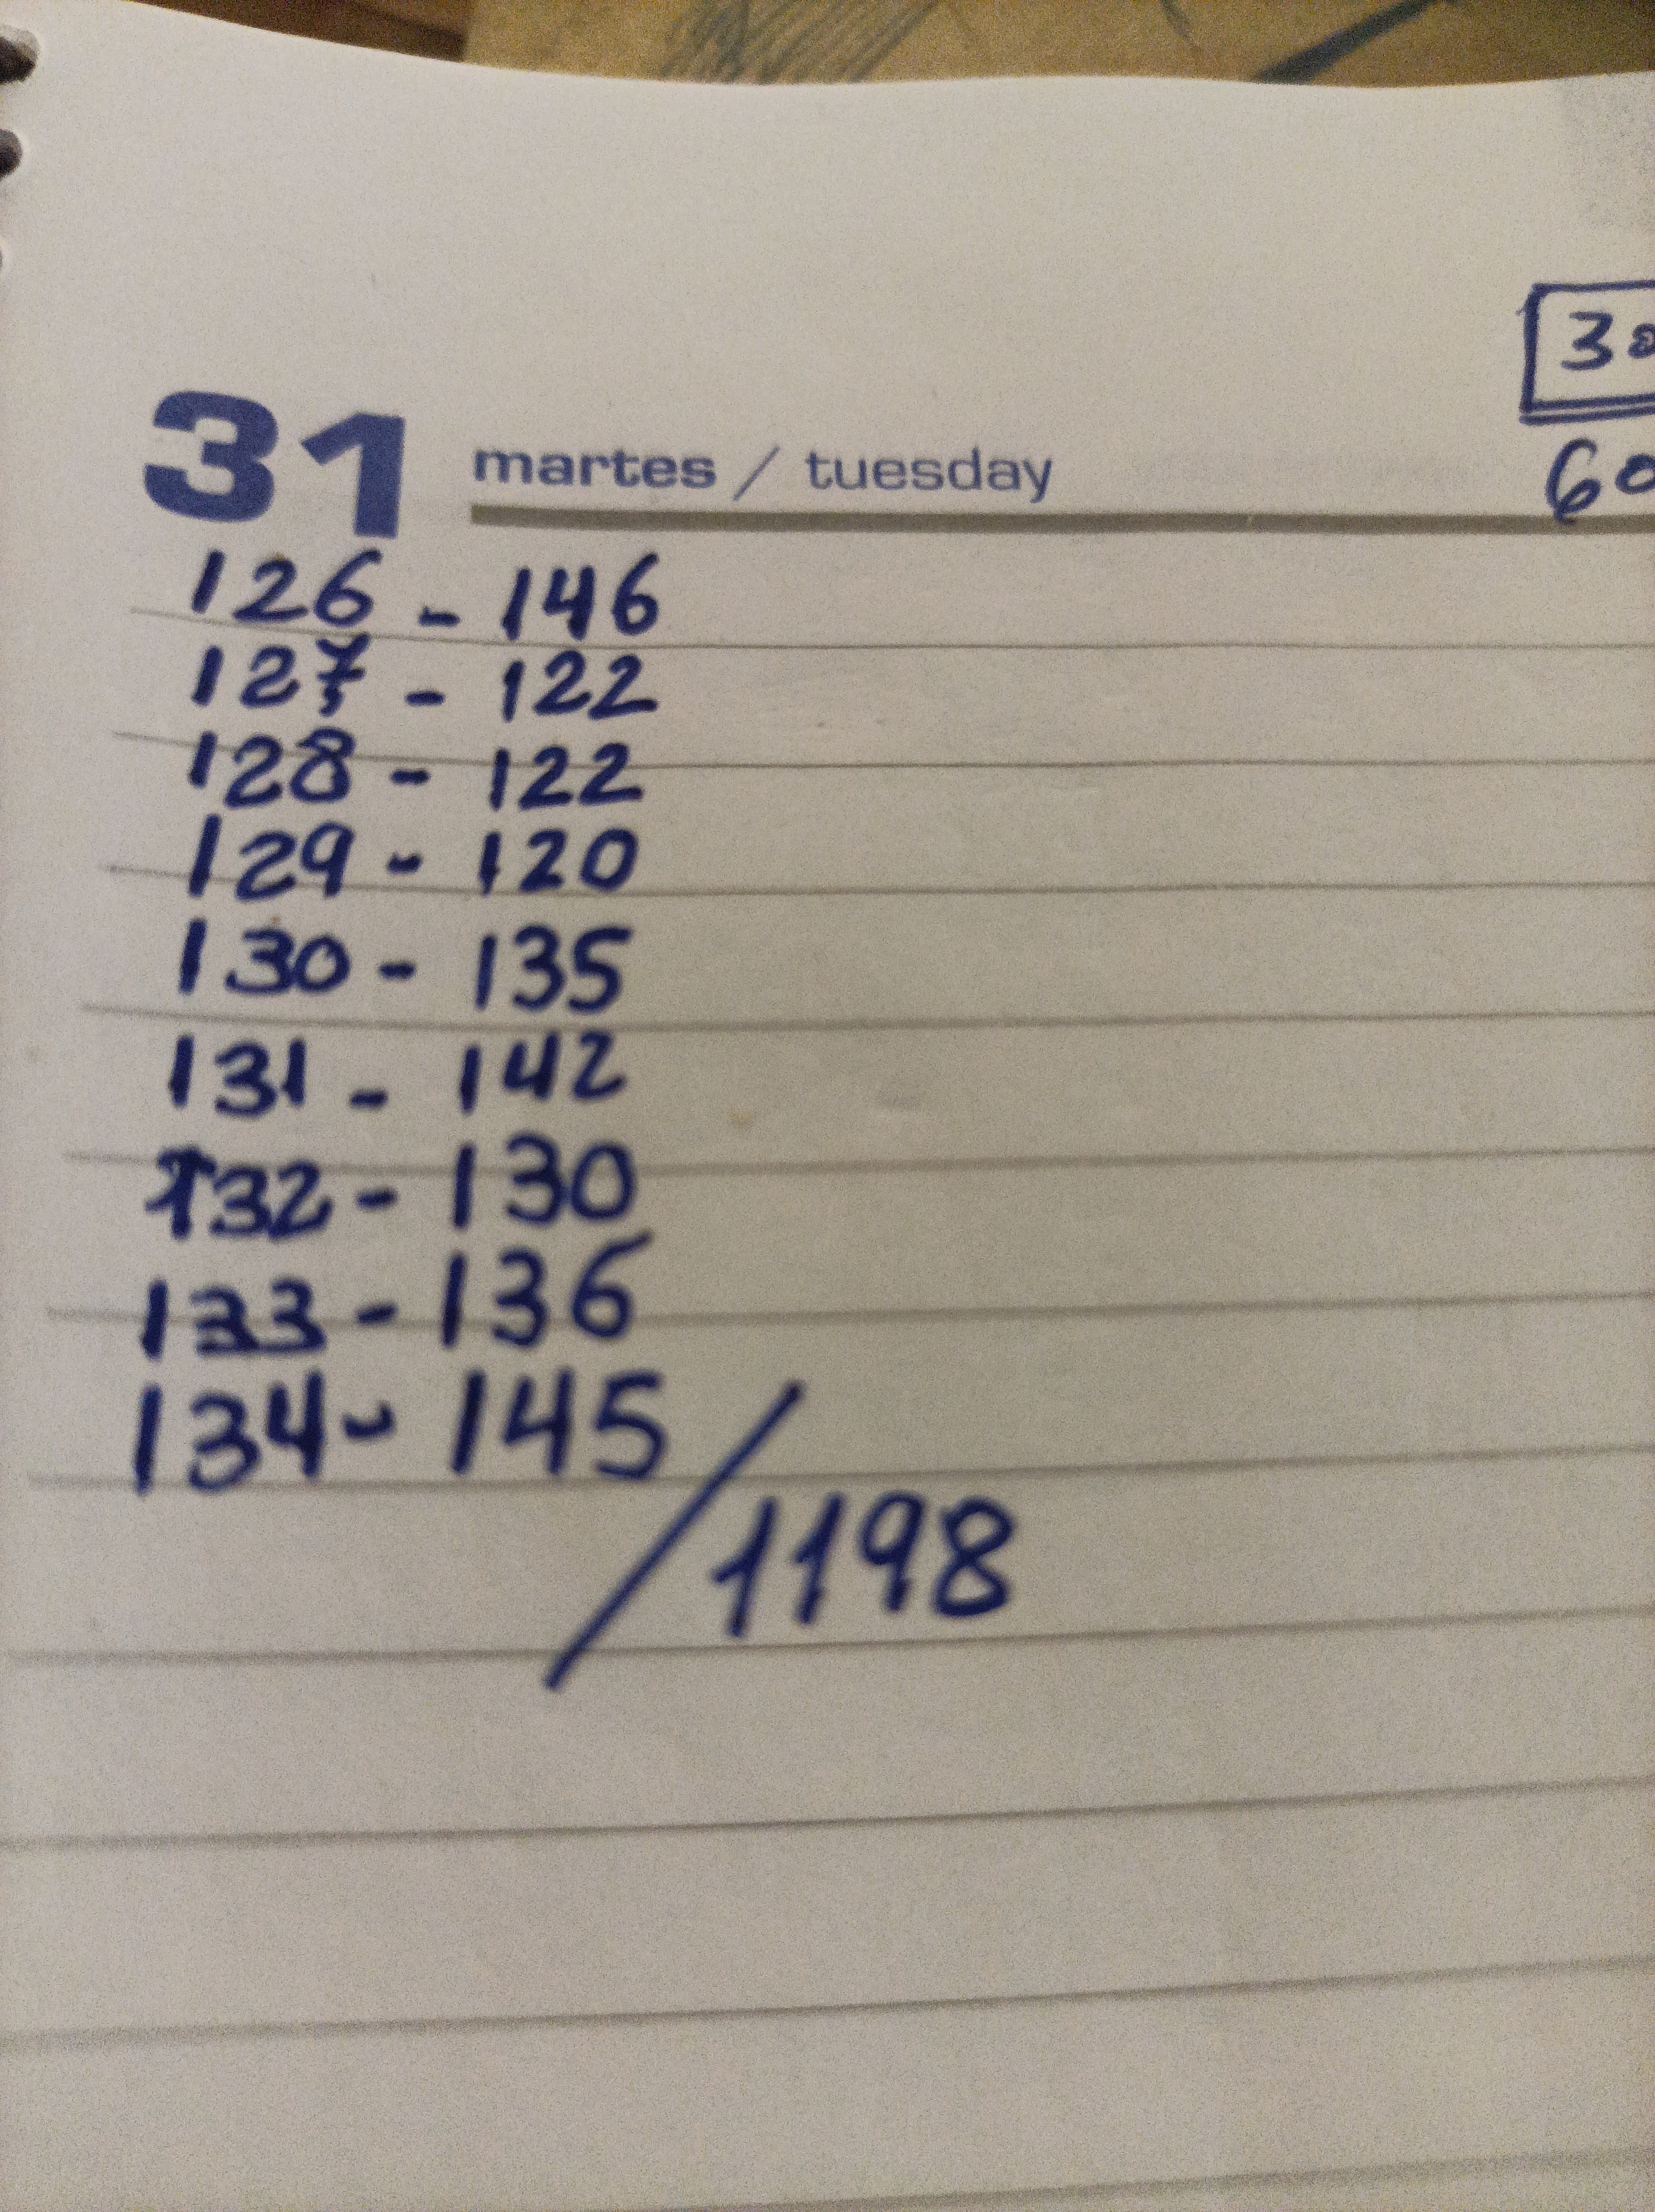 30
60
31 martes / tuesday
126 - 146
127 - 122
128 - 122
129 - 120
130 - 135
131 - 142
132 - 130
133 - 136
134 - 145
/1198